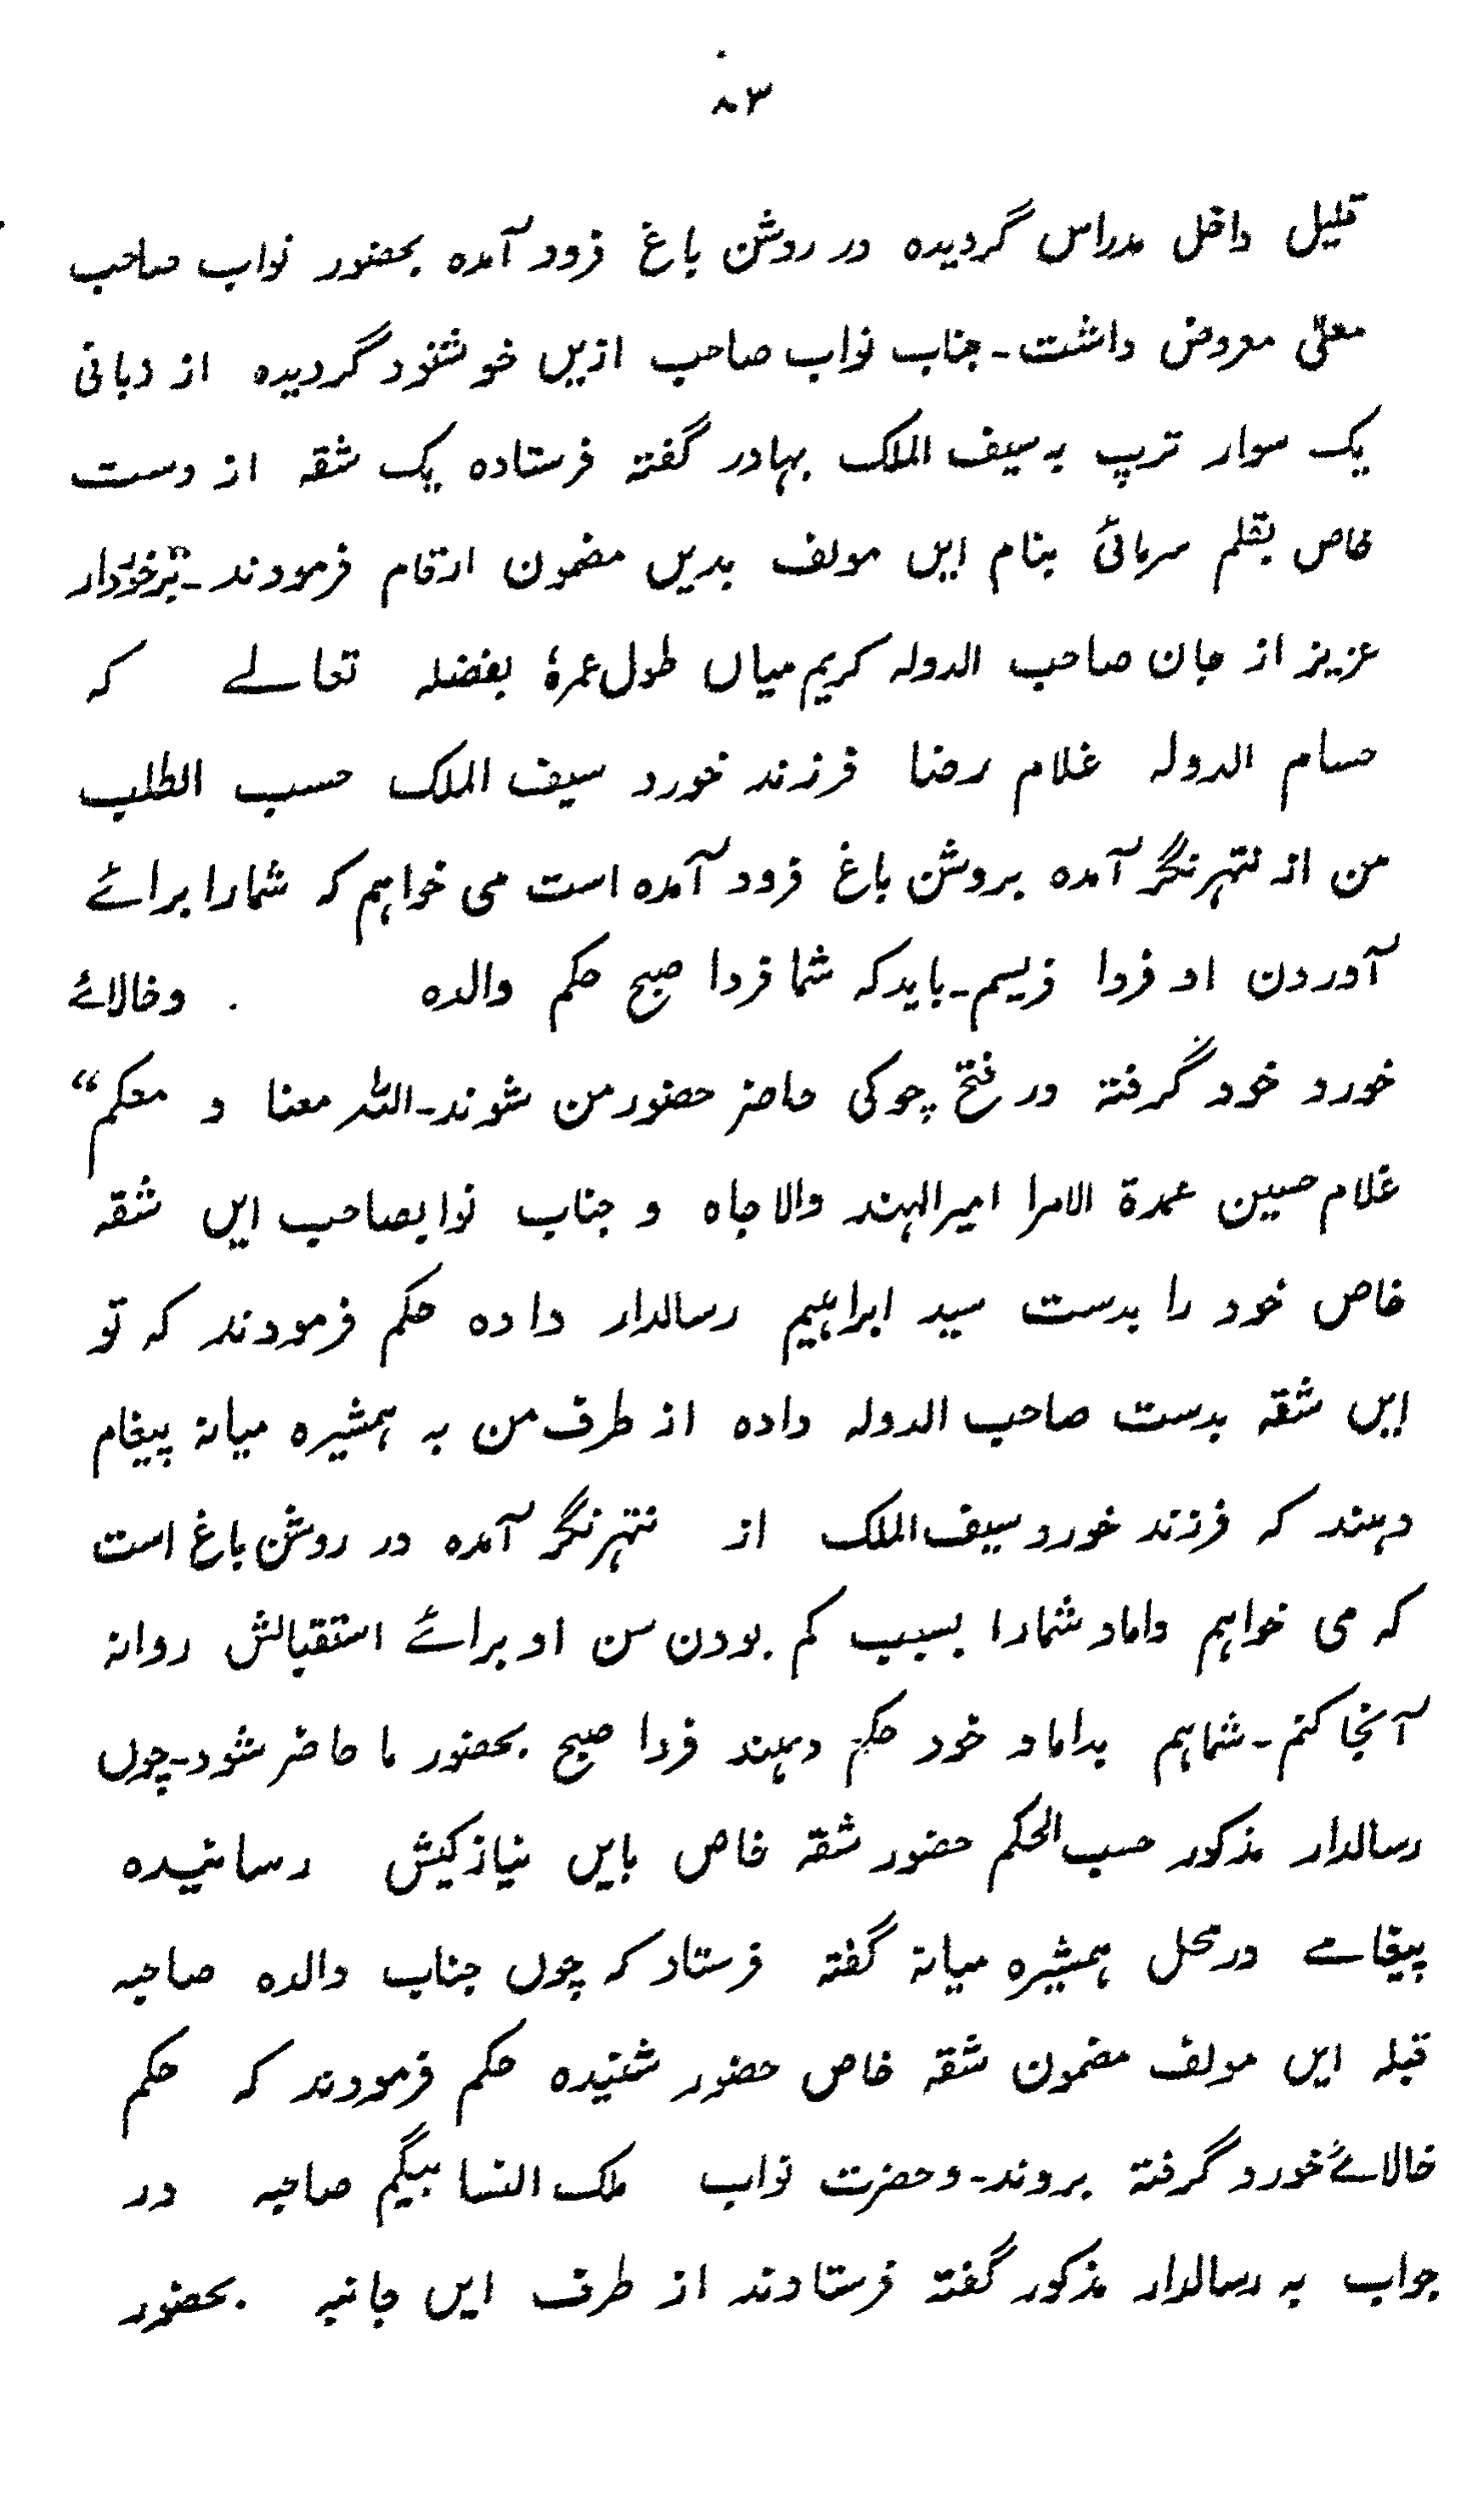 ۸۳
قلیل داخل مدراس گردیده در روشن باغ فرود آمده بحضور نواب صاحب
معلّٰی معروض داشت۔ جناب نواب صاحب ازیں خوشنود گردیده از زبانی
یک سوار ترپ بہ سیف الملک بہادر گفتہ فرستاده یک شقہ از دست
خاص بقلم سربائی بنام ایں مولف بدیں مضمون ارقام فرمودند۔ "برخوردار
عزیز از جان صاحب الدولہ کریم میاں طول عمرهٗ بفضلہ تعالے کہ
حسام الدولہ غلام رضا فرزند خورد سیف الملک حسب الطلب
من از نتہرنگر آمده بروشن باغ فرود آمده است می خواہم کہ شمارا برائے
آوردن او فردا فریسم۔ باید کہ شما فردا صبح حکم والده و خالائے
خورد خود گرفتہ در فتح چوکی حاضر حضور من شوند۔ اللہ معنا و معکم"
غلام حسین عمدة الامرا امیر الہند والا جاه و جناب نوابصاحب ایں شقہ
خاص خود را بدست سید ابراہیم رسالدار داده حکم فرمودند کہ تو
ایں شقہ بدست صاحب الدولہ داده از طرف من بہ ہمشیره میانہ پیغام
دہند کہ فرزند خورد سیف الملک از نتہرنگر آمده در روشن باغ است
کہ می خواہم داماد شمارا بسبب کم بودن سن او برائے استقبالش روانہ
آنجا کنم۔ شماہم بداماد خود حکم دہند فردا صبح بحضور ما حاضر شود۔ چوں
رسالدار مذکور حسب الحکم حضور شقہ خاص بایں نیازکیش رسانیده
پیغامے در محل ہمشیره میانہ گفتہ فرستاد کہ چوں جناب والده صاحبہ
قبلہ ایں مولف مضمون شقہ خاص حضور شنیده حکم فرمودند کہ حکم
خالائے خورد گرفتہ بروند۔ و حضرت نواب ملک النسا بیگم صاحبہ در
جواب بہ رسالدار مذکور گفتہ فرستادند از طرف ایں جانبہ بحضور